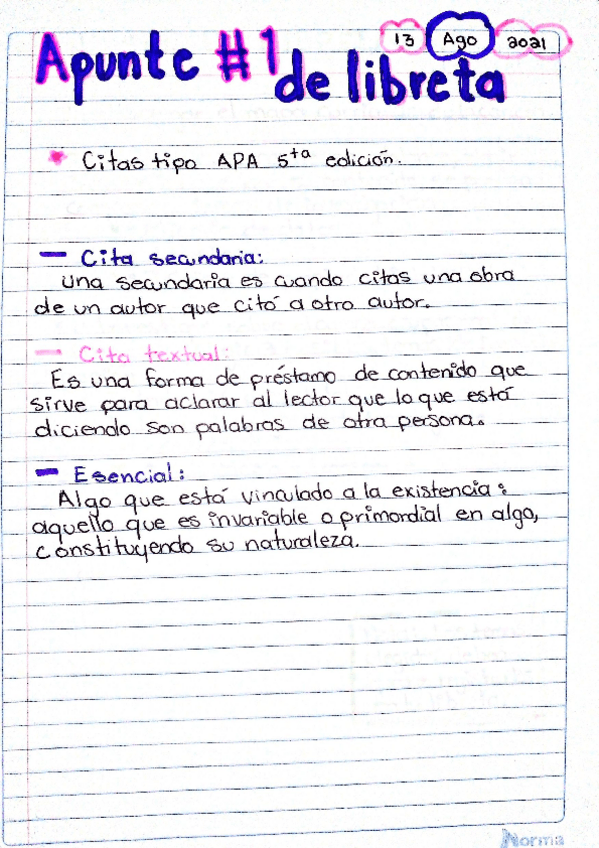 13 Ago 2021
Apunte #1
de libreta
Citas tipo APA 5ta edición.
Cita secundaria:
Una secundaria es cuando citas una obra
de un autor que citó a otro autor.
Cita textual:
Es una forma de préstamo de contenido que
sirve para aclarar al lector que lo que está
diciendo son palabras de otra persona.
Esencial:
Algo que está vinculado a la existencia:
aquello que es invariable o primordial en algo,
constituyendo su naturaleza.
Norma